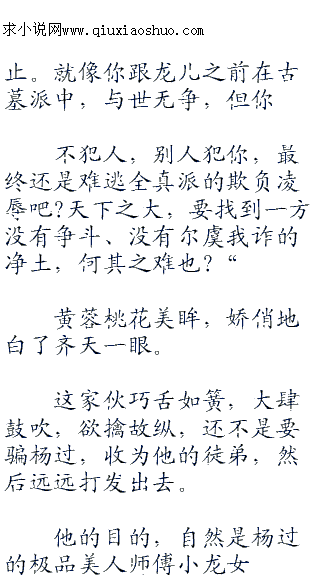 求小说网www.qiuxiaoshuo.com
止。就像你跟龙儿之前在古
墓派中，与世无争，但你
不犯人，别人犯你，最
终还是难逃全真派的欺负凌
辱吧?天下之大，要找到一方
没有争斗、没有尔虞我诈的
净土，何其之难也？“
黄蓉桃花美眸，娇俏地
白了齐天一眼。
这家伙巧舌如簧，大肆
鼓吹，欲擒故纵，还不是要
骗杨过，收为他的徒弟，然
后远远打发出去。
他的目的，自然是杨过
的极品美人师傅小龙女